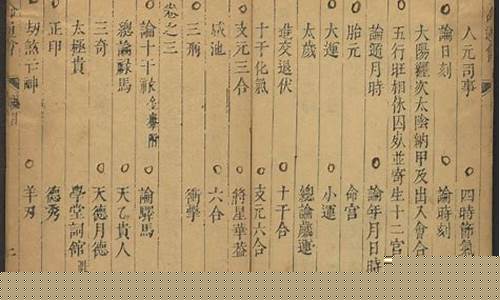 人元司事 ○ 四時節氣
○ 論日刻 ○ 論時刻
大陽躔次太陰納甲及出入會合
五行旺相休囚死並寄生十二宮
論遁月時 ○ 論年月日時
○ 胎元 ○ 命宮
○ 大運 ○ 小運
○ 太歲 ○ 總論歲運
進交退伏 ○ 十干合
十干化氣 ○ 支元六合
○ 支元三合 ○ 將星華蓋
○ 咸池 ○ 六合
○ 三刑 ○ 衝擊
卷之三
○ 論十干祿 ○ 論驛馬
總論祿馬 ○ 天乙貴人
○ 三奇 ○ 天德月德
太極貴 ○ 學堂詞館
○ 正印 ○ 德秀
○ 劫煞亡神 ○ 羊刃